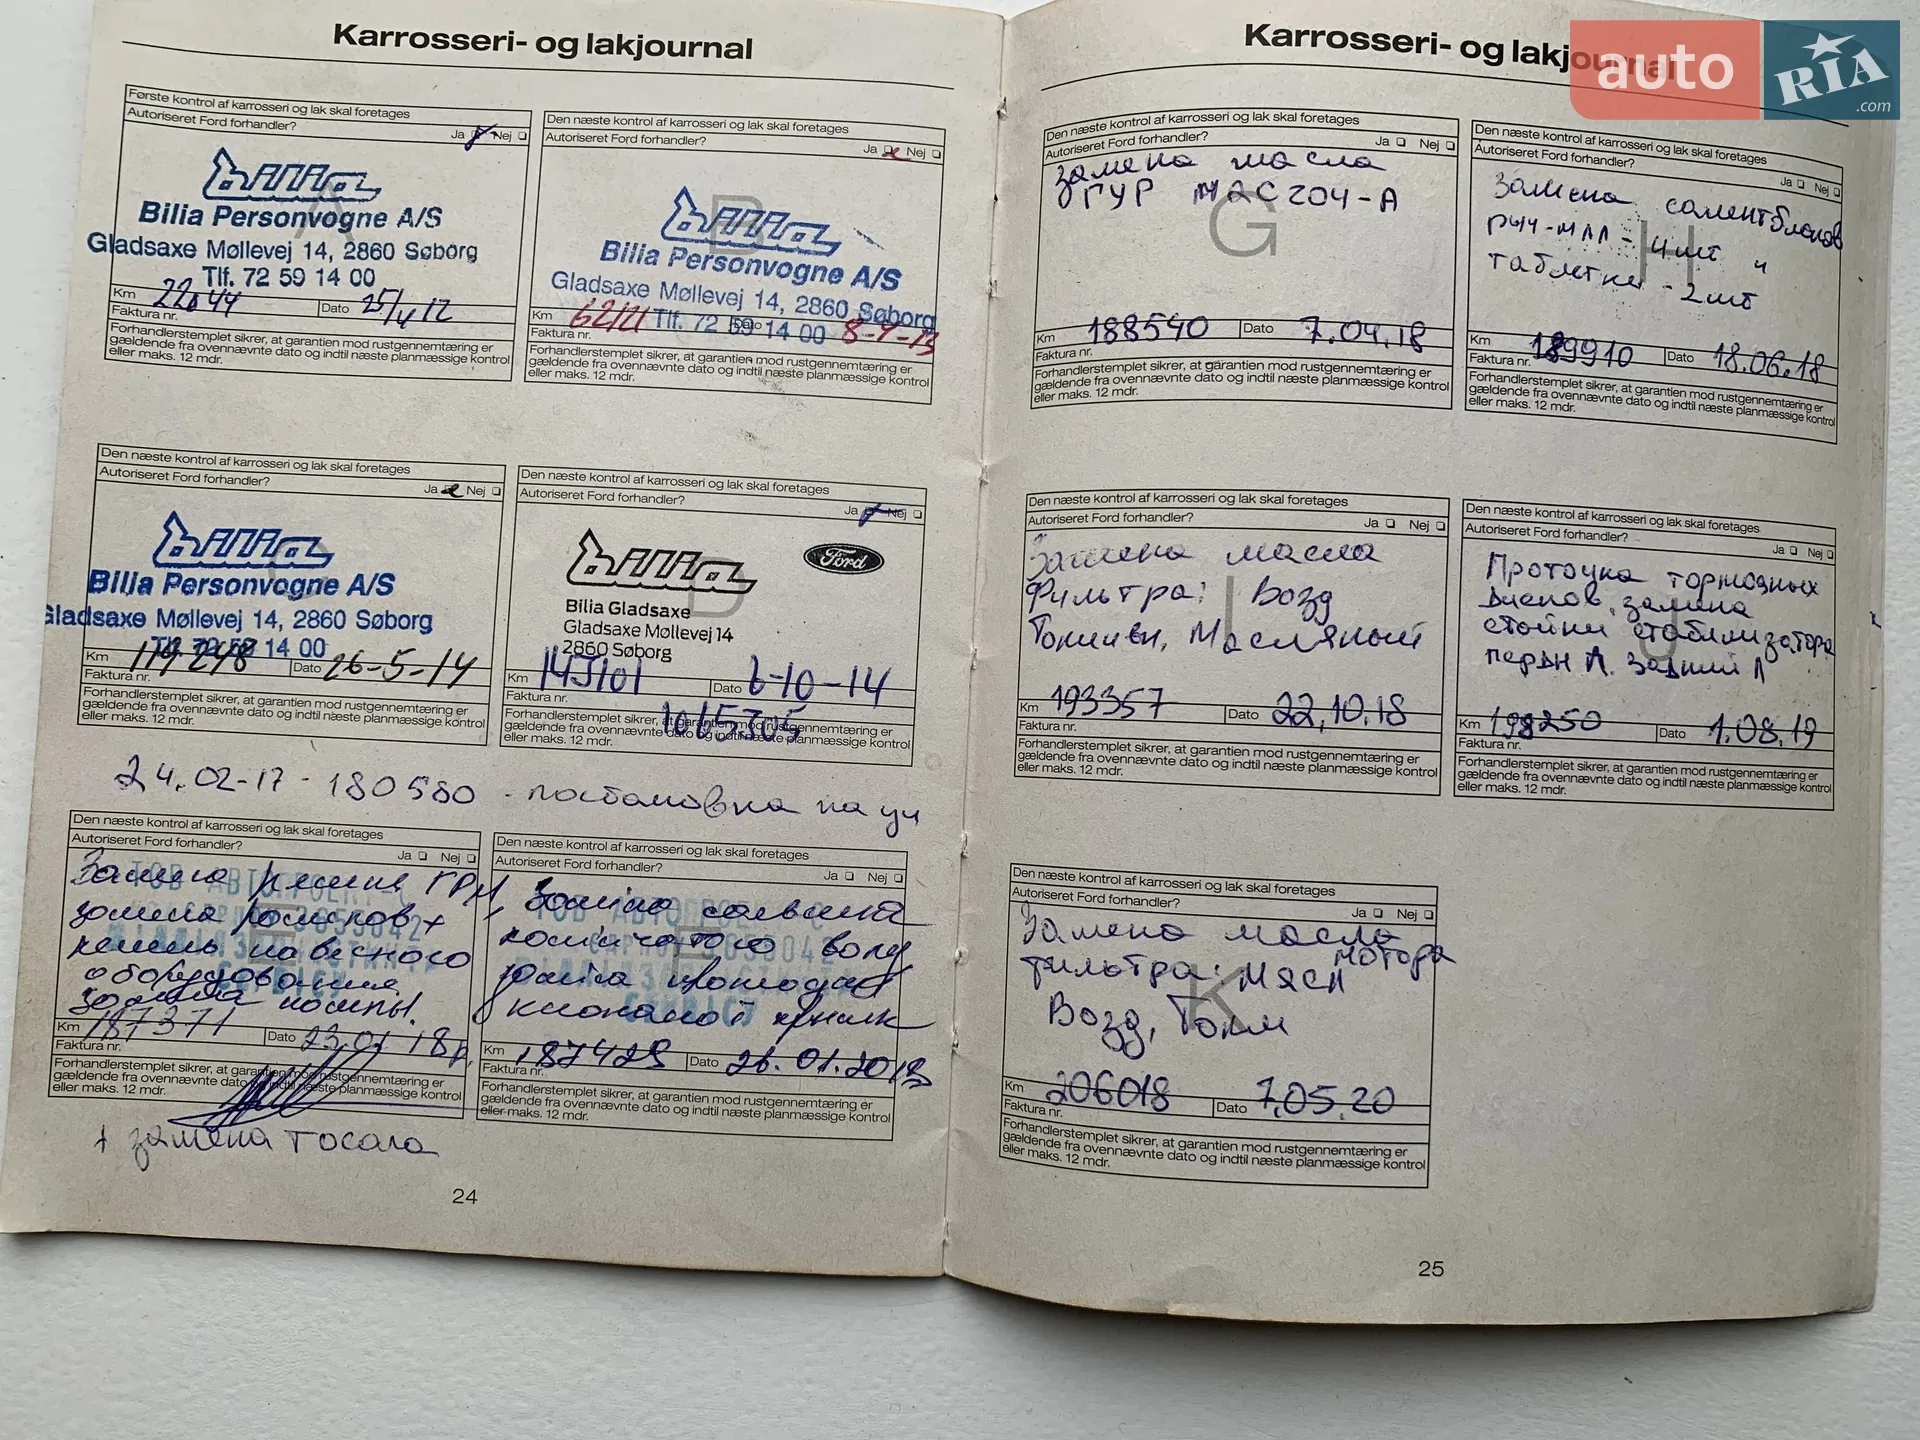 Karrosseri- og lakjournal
Første kontrol af karrosseri og lak skal foretages
Autoriseret Ford forhandler?
Ja Nej
bilia
Bilia Personvogne A/S
Gladsaxe Møllevej 14, 2860 Søborg
Tlf. 72 59 14 00
Km 22044 Dato 25/4 12
Faktura nr.
Forhandlerstemplet sikrer, at garantien mod rustgennemtæring er
gældende fra ovennævnte dato og indtil næste planmæssige kontrol
eller maks. 12 mdr.
Den næste kontrol af karrosseri og lak skal foretages
Autoriseret Ford forhandler?
Ja Nej
B
bilia
Bilia Personvogne A/S
Gladsaxe Møllevej 14, 2860 Søborg
Tlf. 72 59 14 00
Km 62121 Dato
Faktura nr.
Forhandlerstemplet sikrer, at garantien mod rustgennemtæring er
gældende fra ovennævnte dato og indtil næste planmæssige kontrol
eller maks. 12 mdr.
Den næste kontrol af karrosseri og lak skal foretages
Autoriseret Ford forhandler?
Ja Nej
bilia
Bilia Personvogne A/S
Gladsaxe Møllevej 14, 2860 Søborg
Tlf. 72 59 14 00
Km 114248 Dato 26-5-14
Faktura nr.
Forhandlerstemplet sikrer, at garantien mod rustgennemtæring er
gældende fra ovennævnte dato og indtil næste planmæssige kontrol
eller maks. 12 mdr.
Den næste kontrol af karrosseri og lak skal foretages
Autoriseret Ford forhandler?
Ja Nej
D
bilia Ford
Bilia Gladsaxe
Gladsaxe Møllevej 14
2860 Søborg
Km Dato 6-10-14
Faktura nr. 1015305
Forhandlerstemplet sikrer, at garantien mod rustgennemtæring er
gældende fra ovennævnte dato og indtil næste planmæssige kontrol
eller maks. 12 mdr.
24.02-17 - 180580 - постановка на уч
Den næste kontrol af karrosseri og lak skal foretages
Autoriseret Ford forhandler?
Ja Nej
Замена ремня ГРМ,
замена роликов +
ремень навесного
оборудования
замена помпы.
Km 187371 Dato 23.01.18р.
Faktura nr.
Forhandlerstemplet sikrer, at garantien mod rustgennemtæring er
gældende fra ovennævnte dato og indtil næste planmæssige kontrol
eller maks. 12 mdr.
+ замена тосола
Den næste kontrol af karrosseri og lak skal foretages
Autoriseret Ford forhandler?
Ja Nej
Заміна сальника
колінчатого валу
заміна
Km 187429 Dato 26.01.2018
Faktura nr.
Forhandlerstemplet sikrer, at garantien mod rustgennemtæring er
gældende fra ovennævnte dato og indtil næste planmæssige kontrol
eller maks. 12 mdr.
24
Karrosseri- og lakjournal
auto RIA .com
Den næste kontrol af karrosseri og lak skal foretages
Autoriseret Ford forhandler?
Ja Nej
G
замена масла
ГУР M2C204-A
Km 188540 Dato 7.04.18
Faktura nr.
Forhandlerstemplet sikrer, at garantien mod rustgennemtæring er
gældende fra ovennævnte dato og indtil næste planmæssige kontrol
eller maks. 12 mdr.
Den næste kontrol af karrosseri og lak skal foretages
Autoriseret Ford forhandler?
Ja Nej
H
Замена салентблоков
- 4шт и
таблетки - 2шт
Km 189910 Dato 18.06.18
Faktura nr.
Forhandlerstemplet sikrer, at garantien mod rustgennemtæring er
gældende fra ovennævnte dato og indtil næste planmæssige kontrol
eller maks. 12 mdr.
Den næste kontrol af karrosseri og lak skal foretages
Autoriseret Ford forhandler?
Ja Nej
I
Замена масла
Фильтра: Возд
Топливн, Масляный
Km 193357 Dato 22.10.18
Faktura nr.
Forhandlerstemplet sikrer, at garantien mod rustgennemtæring er
gældende fra ovennævnte dato og indtil næste planmæssige kontrol
eller maks. 12 mdr.
Den næste kontrol af karrosseri og lak skal foretages
Autoriseret Ford forhandler?
Ja Nej
J
Проточка тормозных
дисков, замена
стойки стабилизатора
передн Л. задний Л
Km 198250 Dato 1.08.19
Faktura nr.
Forhandlerstemplet sikrer, at garantien mod rustgennemtæring er
gældende fra ovennævnte dato og indtil næste planmæssige kontrol
eller maks. 12 mdr.
Den næste kontrol af karrosseri og lak skal foretages
Autoriseret Ford forhandler?
Ja Nej
K
Замена масла мотора
фильтра: масл
Возд, Топл
Km 206018 Dato 7.05.20
Faktura nr.
Forhandlerstemplet sikrer, at garantien mod rustgennemtæring er
gældende fra ovennævnte dato og indtil næste planmæssige kontrol
eller maks. 12 mdr.
25